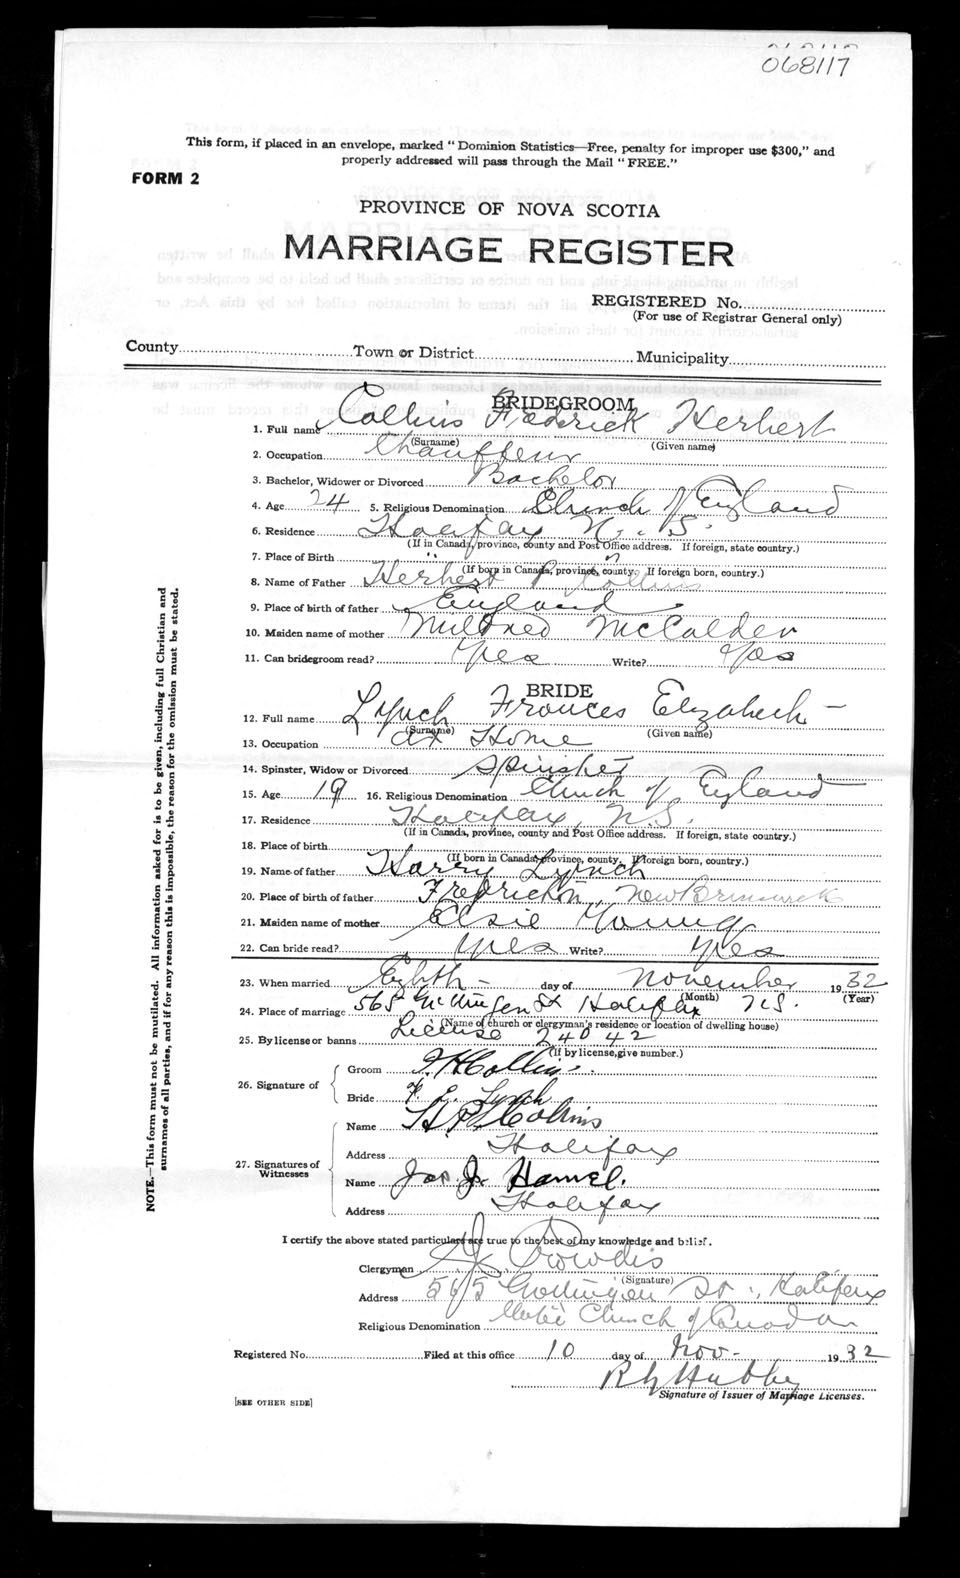 068117
This form, if placed in an envelope, marked "Dominion Statistics—Free, penalty for improper use $300," and
properly addressed will pass through the Mail "FREE."
FORM 2
PROVINCE OF NOVA SCOTIA
MARRIAGE REGISTER
REGISTERED No.
(For use of Registrar General only)
County Town or District Municipality
BRIDEGROOM
1. Full name Collins Frederick Herbert
(Surname) (Given name)
2. Occupation Chauffeur
3. Bachelor, Widower or Divorced Bachelor
4. Age 24 5. Religious Denomination Church of England
6. Residence Halifax N.S.
(If in Canada, province, county and Post Office address. If foreign, state country.)
7. Place of Birth " "
(If born in Canada, province, county. If foreign born, country.)
8. Name of Father Herbert P Collins
9. Place of birth of father England
10. Maiden name of mother Mildred McCalder
11. Can bridegroom read? Yes Write? Yes
BRIDE
12. Full name Lynch Frances Elizabeth
(Surname) (Given name)
13. Occupation at Home
14. Spinster, Widow or Divorced Spinster
15. Age 19 16. Religious Denomination Church of England
17. Residence Halifax, N.S.
(If in Canada, province, county and Post Office address. If foreign, state country.)
18. Place of birth
(If born in Canada, province, county. If foreign born, country.)
19. Name of father Harry Lynch
20. Place of birth of father Fredricton, New Brunswick
21. Maiden name of mother Elsie Young
22. Can bride read? Yes Write? Yes
23. When married Eighth day of November 1932
(Month) (Year)
24. Place of marriage 565 St Halifax N.S.
(Name of church or clergyman's residence or location of dwelling house)
25. By license or banns License 24042
(If by license, give number.)
26. Signature of
Groom F H Collins.
Bride F. E. Lynch
27. Signatures of
Witnesses
Name H P Collins
Address Halifax
Name Jas. J. Hamel.
Address Halifax
I certify the above stated particulars are true to the best of my knowledge and belief.
Clergyman Prowdis
(Signature)
Address 565 Gottingen St., Halifax
Religious Denomination United Church of Canada
Registered No. Filed at this office 10 day of Nov- 1932
R Hubley
Signature of Issuer of Marriage Licenses.
[SEE OTHER SIDE]
NOTE.—This form must not be mutilated. All information asked for is to be given, including full Christian and
surnames of all parties, and if for any reason this is impossible, the reason for the omission must be stated.